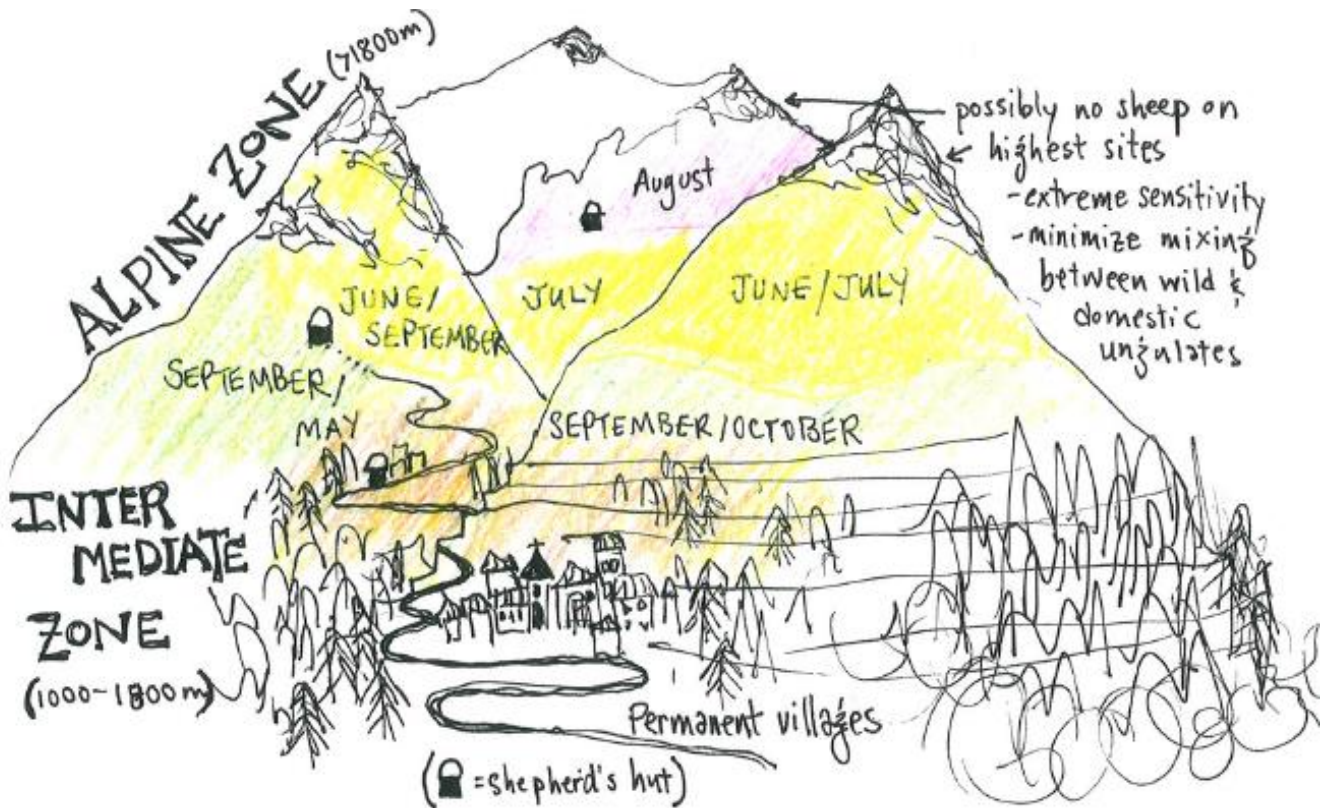 ALPINE ZONE (>1800m)
possibly no sheep on
highest sites
-extreme sensitivity
-minimize mixing
between wild &
domestic
ungulates
August
JUNE/
SEPTEMBER
JULY
JUNE/JULY
SEPTEMBER/
MAY
SEPTEMBER/OCTOBER
INTER
MEDIATE
ZONE
(1000-1800m)
Permanent villages
(=shepherd's hut)